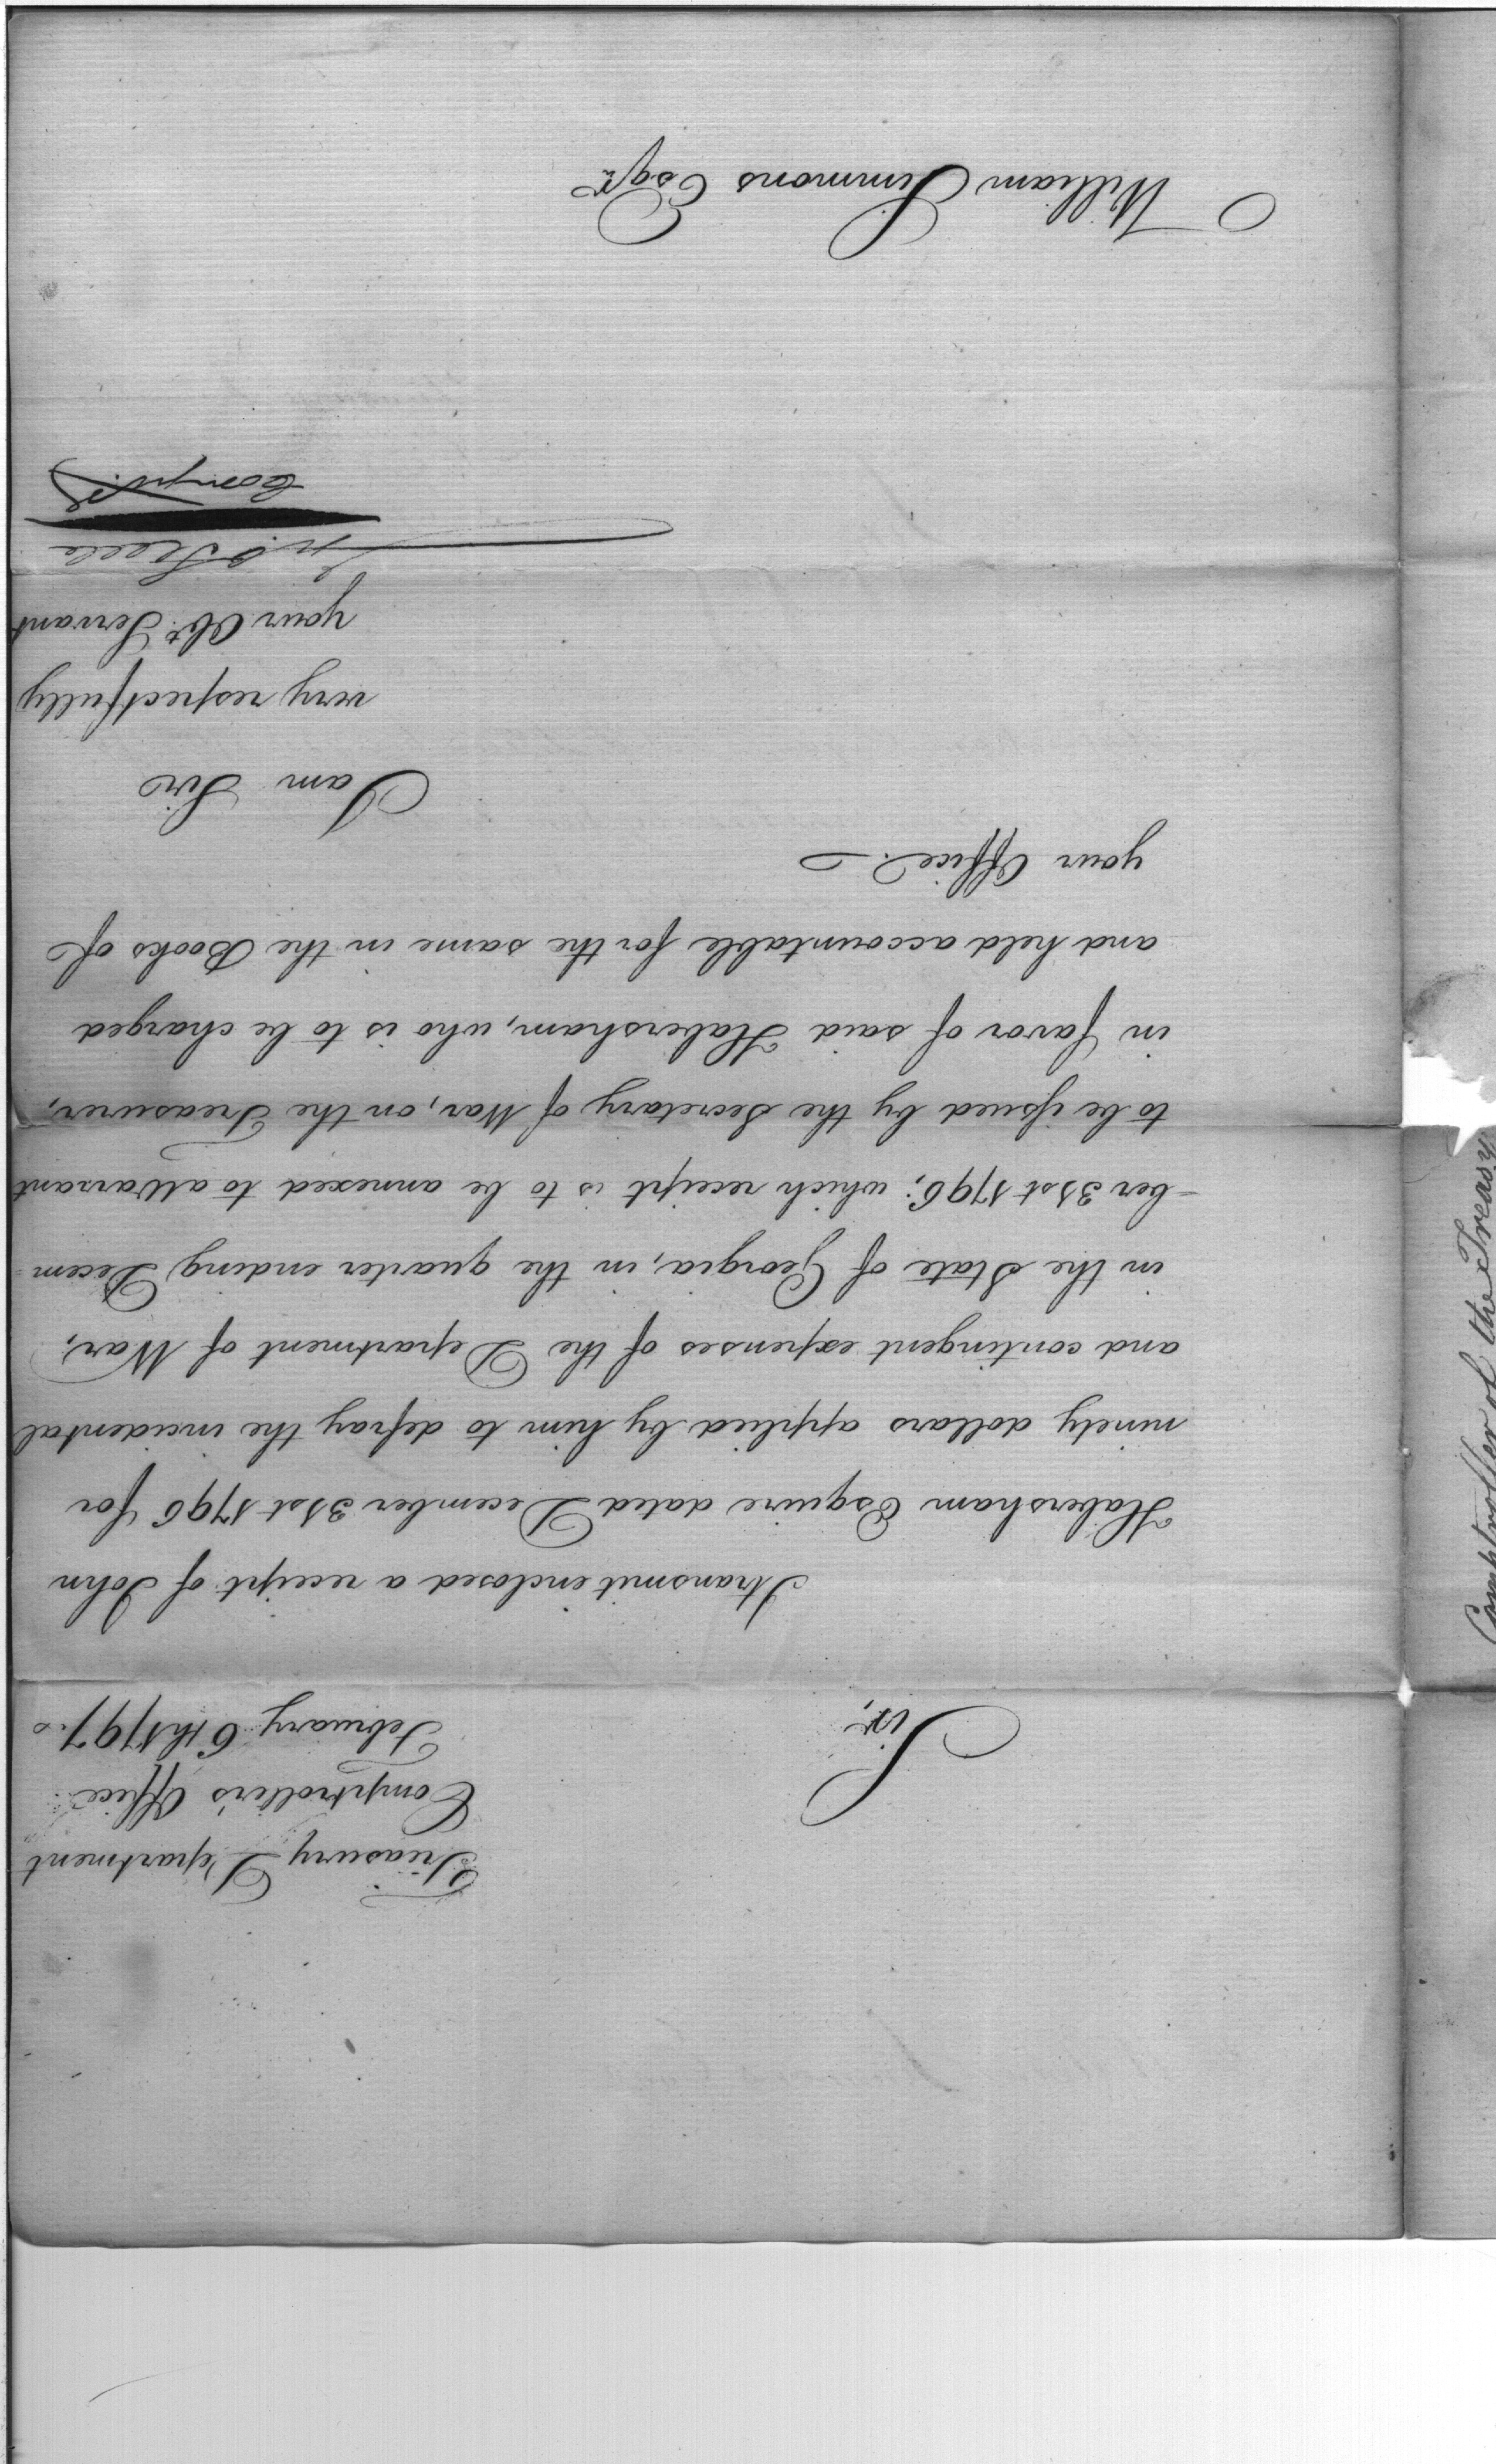 Treasury Department
Comptroller's Office
February 6th 1797.
Sir,
I transmit enclosed a receipt of John
Habersham Esquire dated December 31st 1796 for
ninety dollars applied by him to defray the incidental
and contingent expenses of the Department of War,
in the State of Georgia, in the quarter ending Decem-
-ber 31st 1796; which receipt is to be annexed to a Warrant
to be issued by the Secretary of War, on the Treasurer,
in favor of said Habersham, who is to be charged
and held accountable for the same in the Books of
your Office.
I am Sir
very respectfully
your Obt. Servant
Jno Steele
Comptr.
William Simmons Esqr
Comptroller of the Treasy